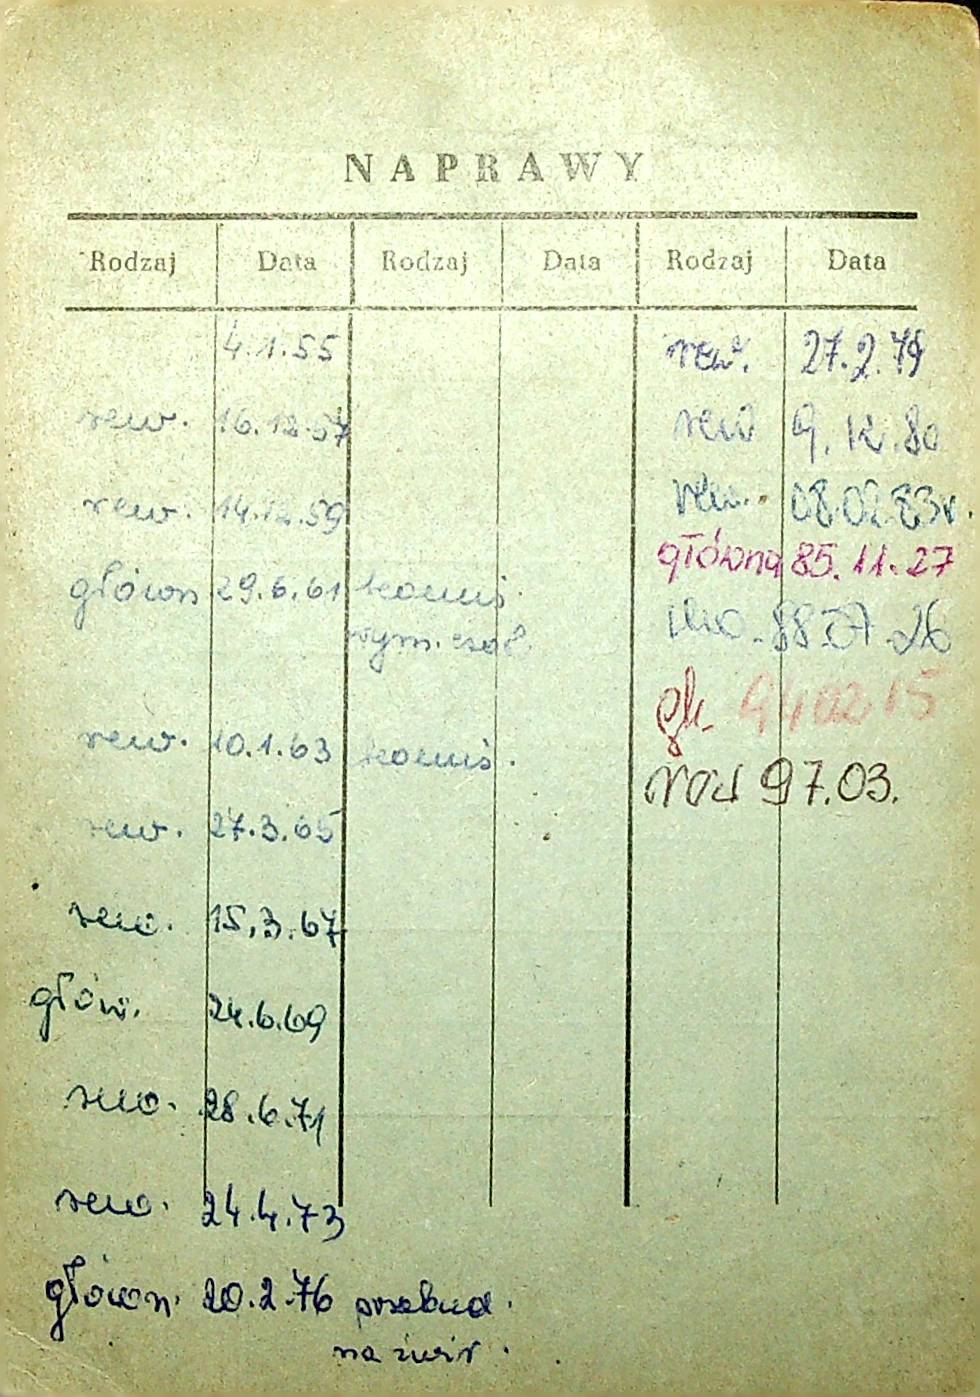 NAPRAWY
Rodzaj Data Rodzaj Data Rodzaj Data
4.1.55
rew. 16.12.57
rew. 14.12.59
główn 29.6.61 komis.
wym. czoł.
rew. 10.1.63 komis.
rew. 27.3.65
rew. 15.3.67
głów. 24.6.69
rew. 28.6.71
rew. 24.4.73
główn. 20.2.76 przebud.
na żwir.
rew. 27.2.79
rew 9.12.80
rew. 08.02.83r.
główna 85.11.27
88 07 26
gł. 94 02 15
rew 97.03.